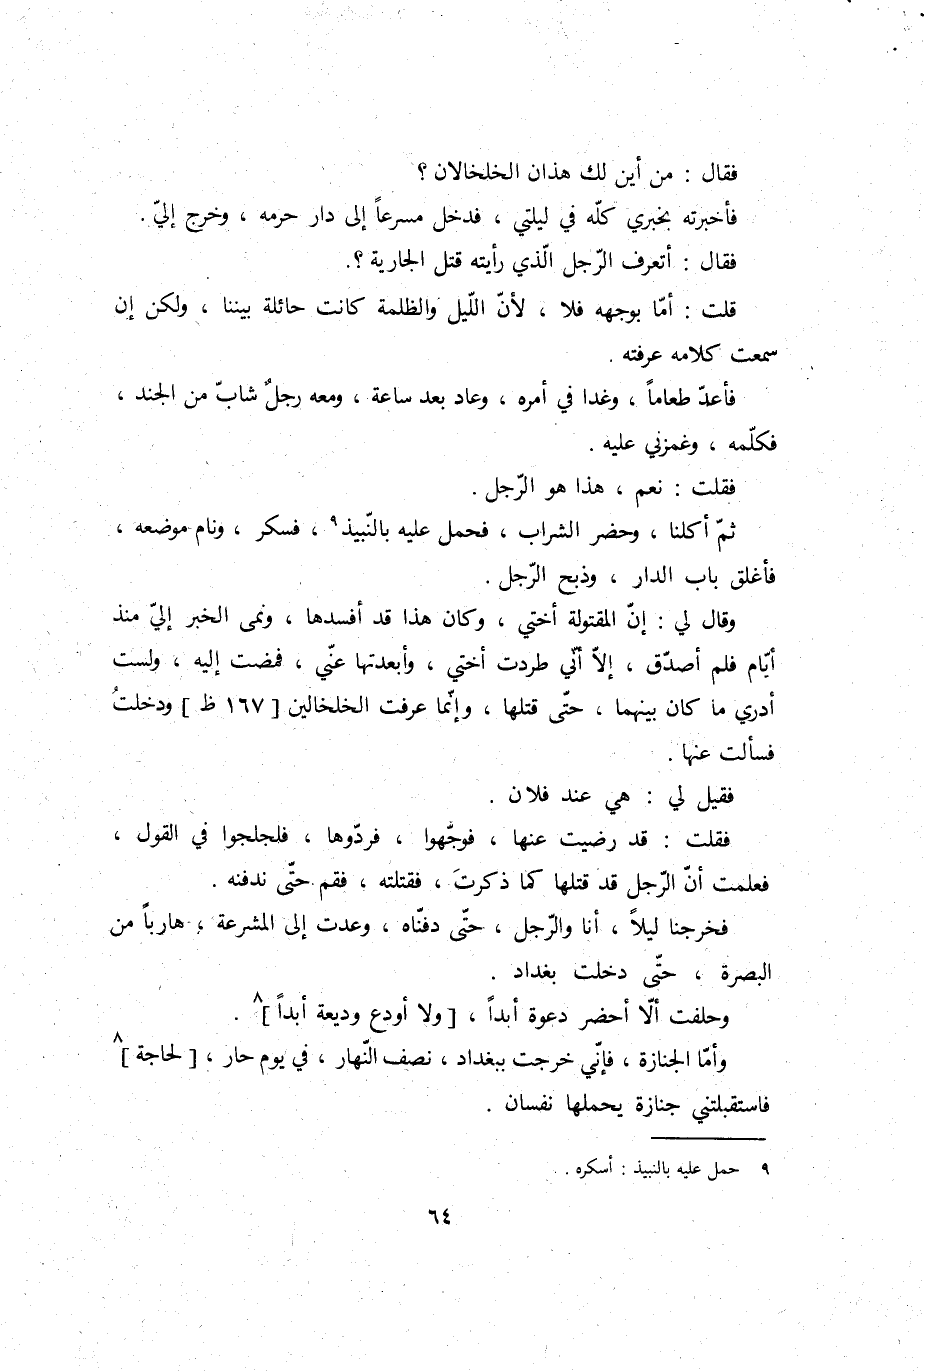 فقال : من أين لك هذان الخلخالان ؟
فأخبرته بخبري كلّه في ليلتي ، فدخل مسرعاً إلى دار حرمه ، وخرج إليّ .
فقال : أتعرف الرّجل الّذي رأيته قتل الجارية ؟.
قلت : أمّا بوجهه فلا ، لأنّ اللّيل والظلمة كانت حائلة بيننا ، ولكن إن
سمعت كلامه عرفته .
فأعدّ طعاماً ، وغدا في أمره ، وعاد بعد ساعة ، ومعه رجلٌ شابّ من الجند ،
فكلّمه ، وغمزني عليه .
فقلت : نعم ، هذا هو الرّجل .
ثمّ أكلنا ، وحضر الشراب ، فحمل عليه بالنّبيذ٩ ، فسكر ، ونام موضعه ،
فأغلق باب الدار ، وذبح الرّجل .
وقال لي : إنّ المقتولة أختي ، وكان هذا قد أفسدها ، ونمى الخبر إليّ منذ
أيّام فلم أصدّق ، إلاّ أنّي طردت أختي ، وأبعدتها عنّي ، فمضت إليه ، ولست
أدري ما كان بينهما ، حتّى قتلها ، وإنّما عرفت الخلخالين [ ١٦٧ ظ ] ودخلتُ
فسألت عنها .
فقيل لي : هي عند فلان .
فقلت : قد رضيت عنها ، فوجّهوا ، فردّوها ، فلجلجوا في القول ،
فعلمت أنّ الرّجل قد قتلها كما ذكرتَ ، فقتلته ، فقم حتّى ندفنه .
فخرجنا ليلاً ، أنا والرّجل ، حتّى دفنّاه ، وعدت إلى المشرعة ، هارباً من
البصرة ، حتّى دخلت بغداد .
وحلفت ألّا أحضر دعوة أبداً ، [ ولا أودع وديعة أبداً ]٨ .
وأمّا الجنازة ، فإنّي خرجت ببغداد ، نصف النّهار ، في يوم حار ، [ لحاجة ]٨
فاستقبلتني جنازة يحملها نفسان .
٩ حمل عليه بالنبيذ : أسكره .
٦٤